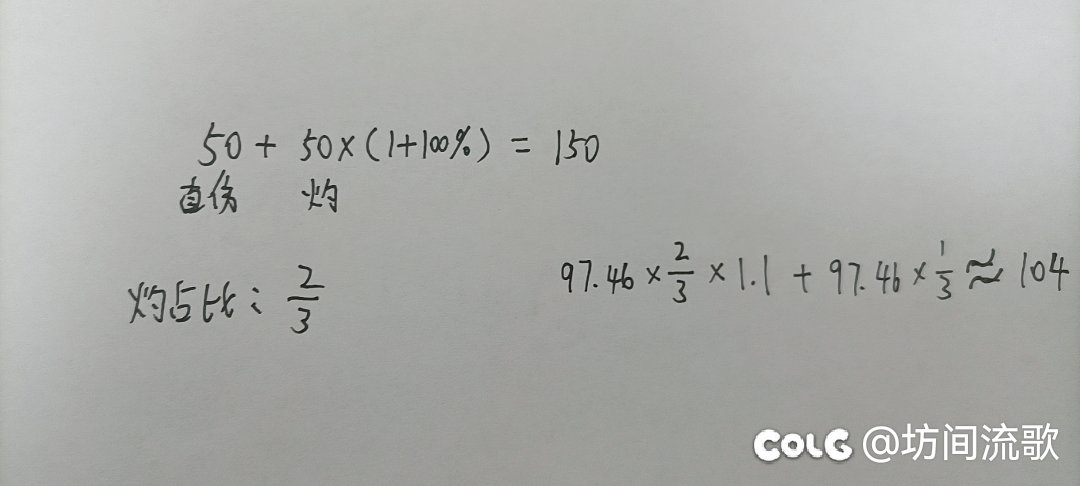 50 + 50×(1+100%) = 150
直伤 灼
灼占比: 2/3
97.46 × 2/3 × 1.1 + 97.46 × 1/3 ≈ 104
COLG @坊间流歌